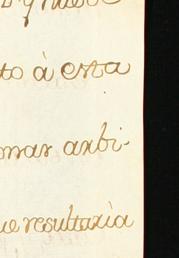 to à esta
omar arbi-
ue resultaria